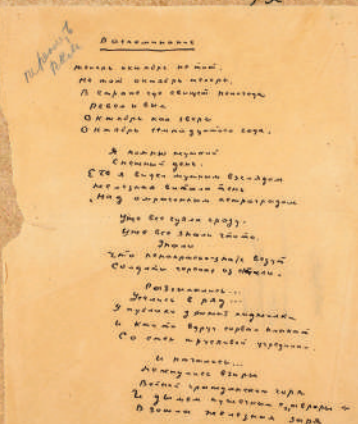 Воспоминание
теперь октябрь не тот,
не тот октябрь теперь.
В стране где свищет непогода
Ревел и выл
Октябрь как зверь
Октябрь семнадцатого года.
Я помню жуткий
Снежный день.
Его я видел мутным взглядом
Железная витала тень
Над омраченным петроградом
Уже все чуяли грозу.
Уже все знали что-то.
Знали
Что не напрасно знать везут
Солдаты черепах из стали.
Рассыпались...
Уселись в ряд...
У публики дрожат поджилки
И кто-то вдруг сорвал плакат
Со стен трусливой учредилки.
И началось...
Метнулись взоры
Войной гражданскою горя
И дымом пушечным с Авроры
Взошла железная заря